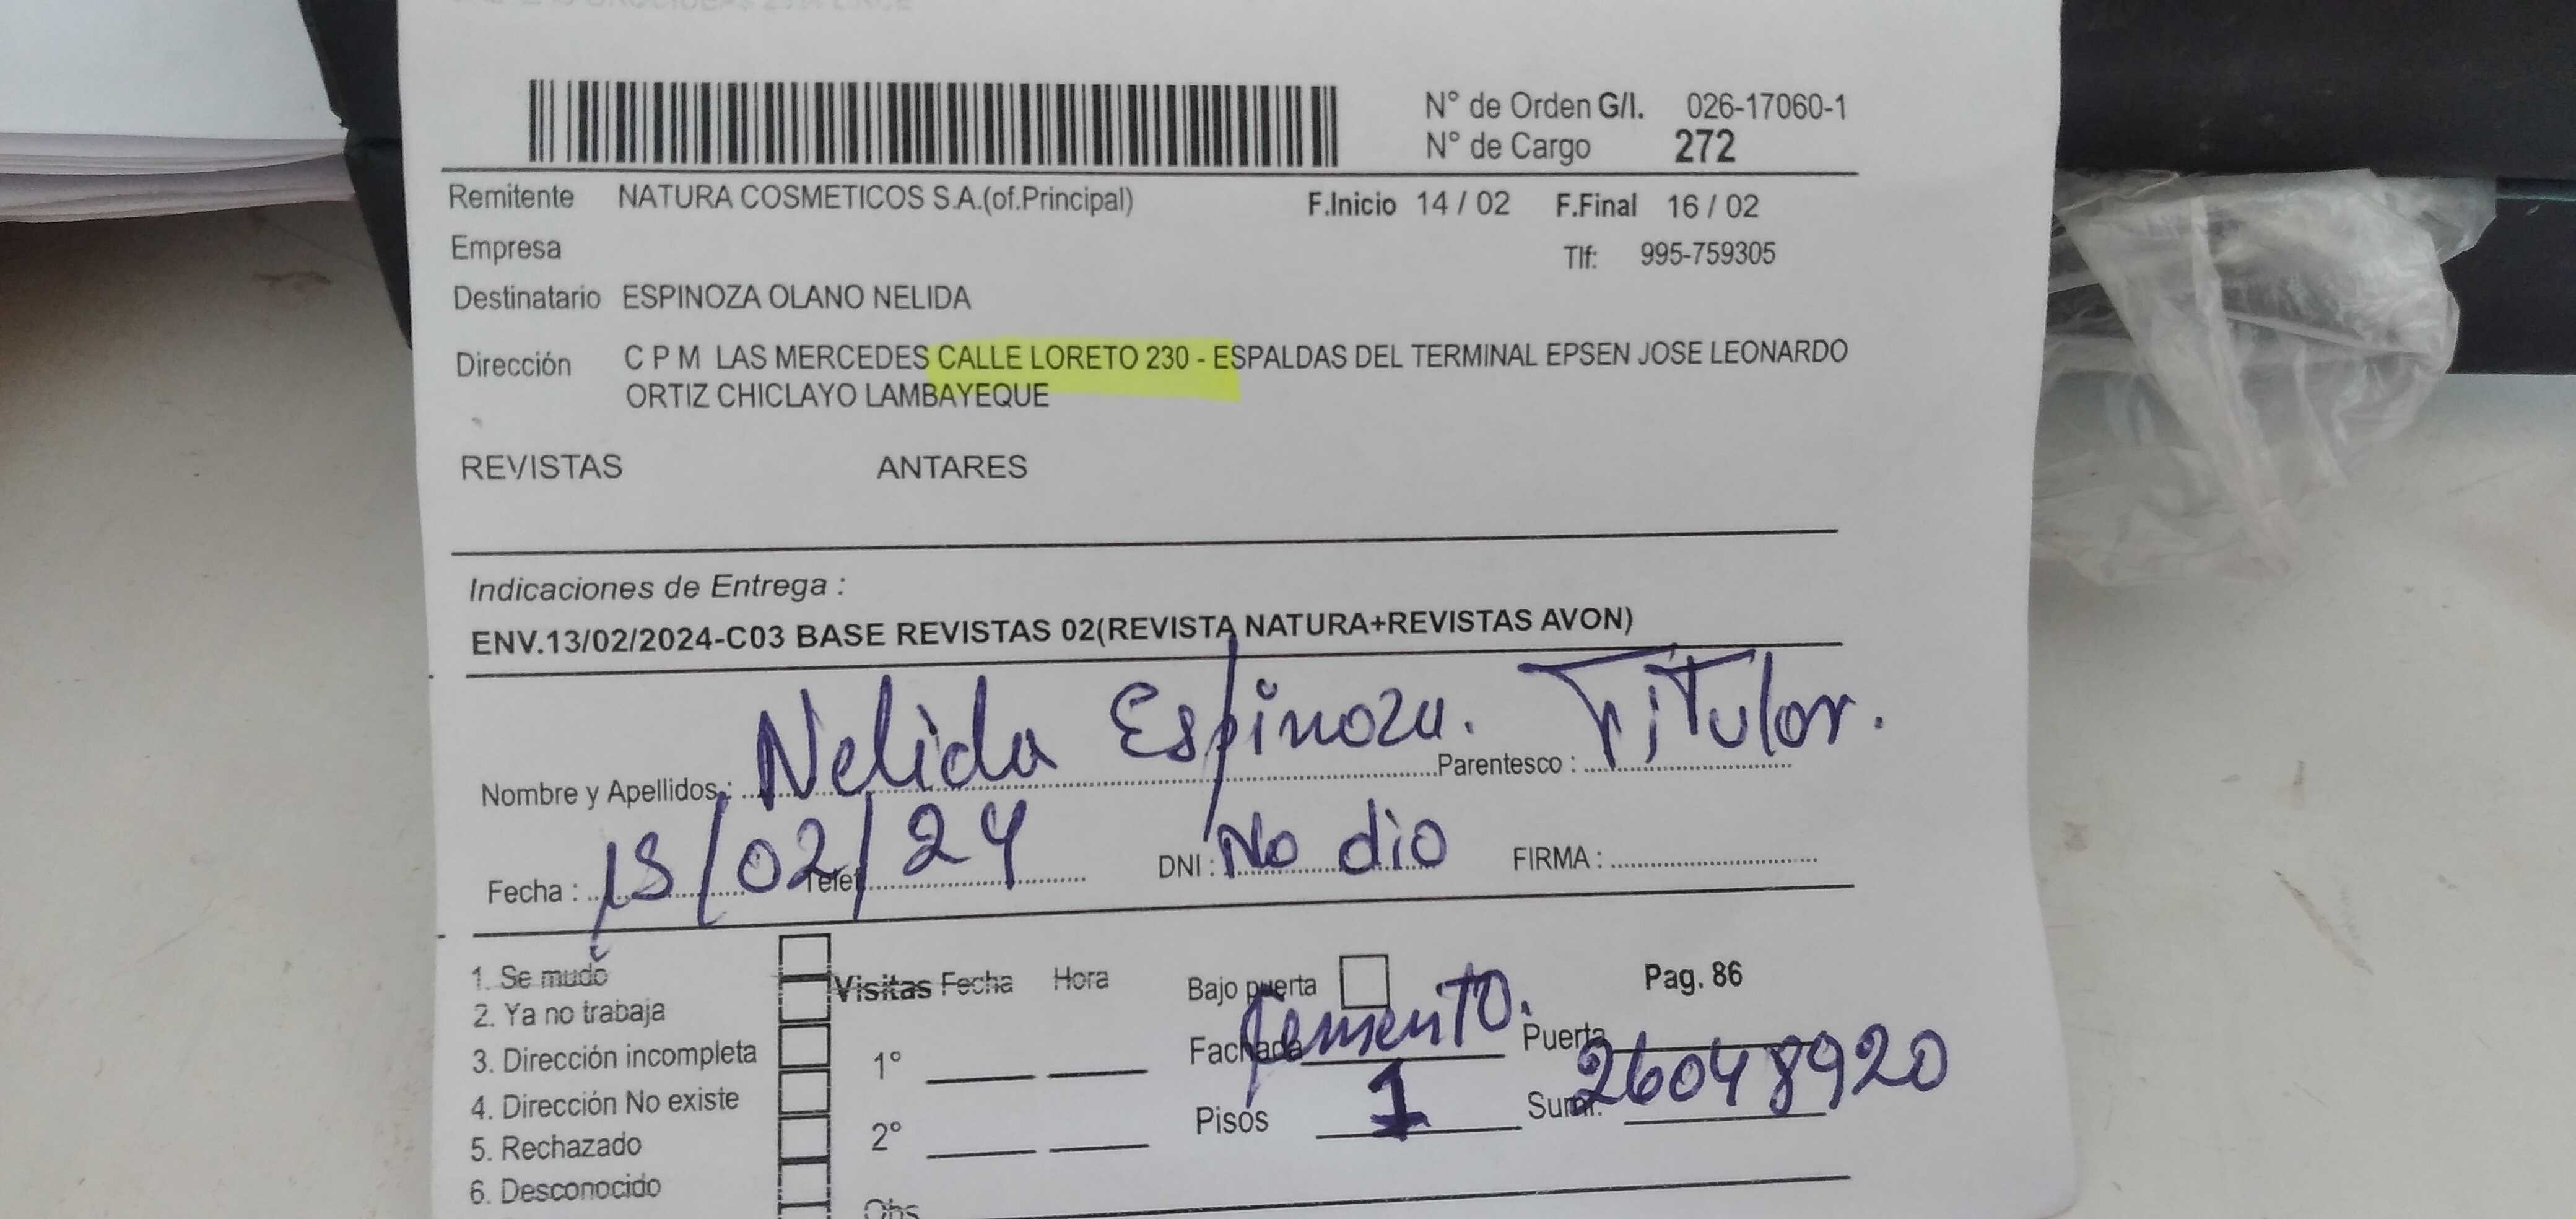 N° de Orden G/I. 026-17060-1
N° de Cargo 272
Remitente NATURA COSMETICOS S.A.(of.Principal) F.Inicio 14 / 02 F.Final 16 / 02
Empresa Tlf: 995-759305
Destinatario ESPINOZA OLANO NELIDA
Dirección C P M LAS MERCEDES CALLE LORETO 230 - ESPALDAS DEL TERMINAL EPSEN JOSE LEONARDO
ORTIZ CHICLAYO LAMBAYEQUE
REVISTAS ANTARES
Indicaciones de Entrega :
ENV.13/02/2024-C03 BASE REVISTAS 02(REVISTA NATURA+REVISTAS AVON)
Nombre y Apellidos : Nelida Espinoza. Parentesco : Titular.
Fecha : 15/02/24 Telef. DNI : No dio FIRMA :
1. Se mudo Visitas Fecha Hora Bajo puerta Pag. 86
2. Ya no trabaja
3. Dirección incompleta 1° Fachada Cemento. Puerta
4. Dirección No existe Pisos 1 Sumr. 26048920
5. Rechazado 2°
6. Desconocido
Obs